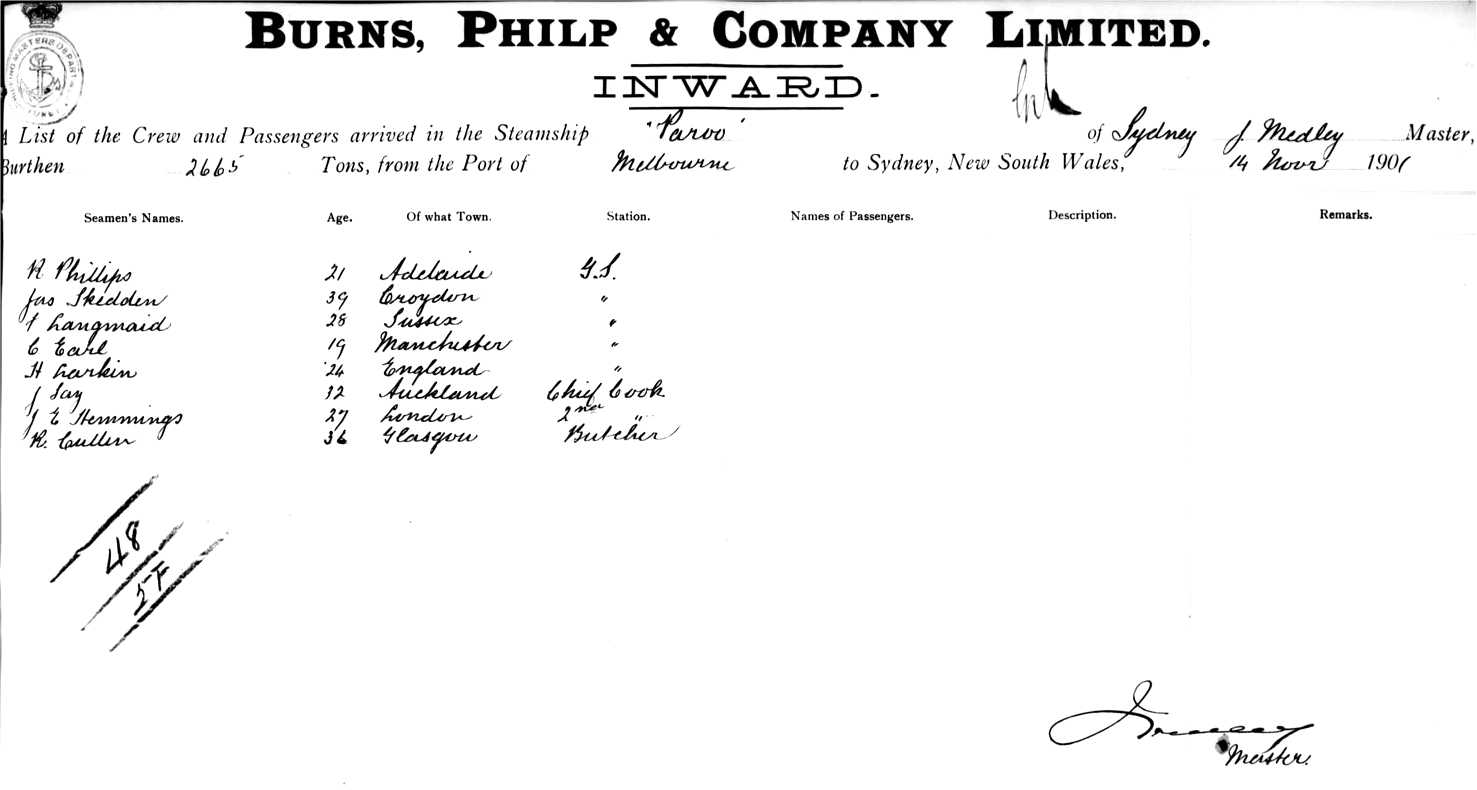 BURNS, PHILP & COMPANY LIMITED.
INWARD.
A List of the Crew and Passengers arrived in the Steamship 'Paroo' of Sydney J. Medley Master,
Burthen 2665 Tons, from the Port of Melbourne to Sydney, New South Wales, 14 Novr 1901
Seamen's Names. Age. Of what Town. Station. Names of Passengers. Description. Remarks.
R Phillips 21 Adelaide G.S.
Jas Skedden 39 Croydon "
Langmaid 28 Sussex "
C Earl 19 Manchester "
H Larkin 24 England "
J Jay 32 Auckland Chief Cook
J E Hemmings 27 London 2nd "
R. Cullen 36 Glasgow Butcher
48
Master.